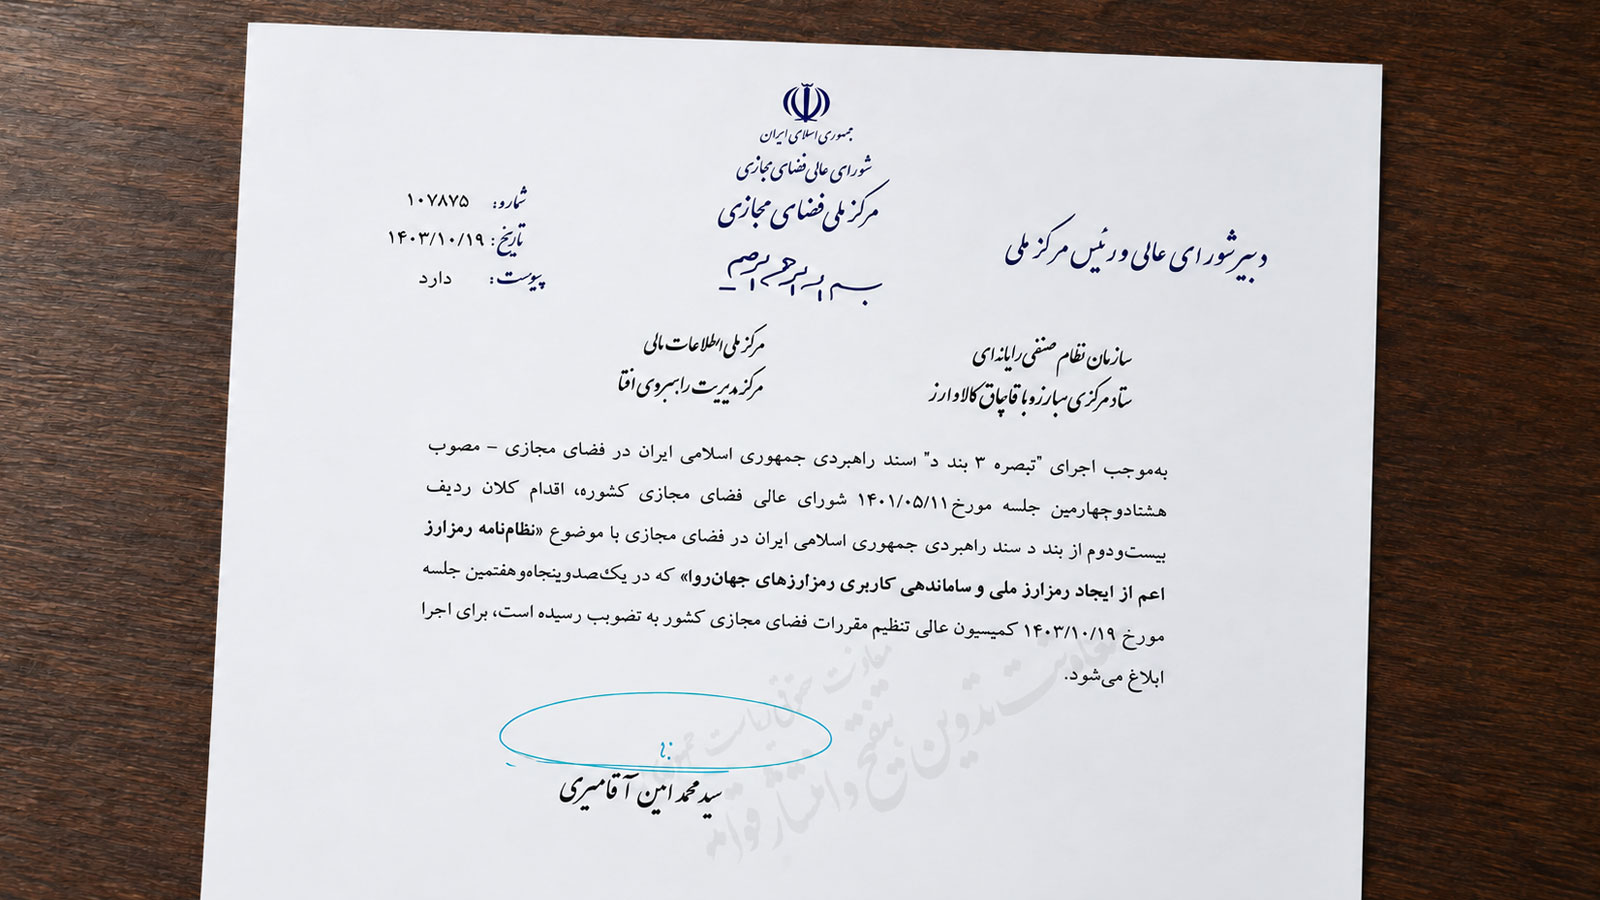 جمهوری اسلامی ایران
شورای عالی فضای مجازی
مرکز ملی فضای مجازی
بسم الله الرحمن الرحیم
دبیر شورای عالی و رئیس مرکز ملی
شماره: ۱۰۷۸۷۵
تاریخ: ۱۴۰۳/۱۰/۱۹
پیوست: دارد
سازمان نظام صنفی رایانه‌ای
ستاد مرکزی مبارزه با قاچاق کالا و ارز
مرکز ملی اطلاعات مالی
مرکز مدیریت راهبردی افتا
به‌موجب اجرای "تبصره ۳ بند د" اسند راهبردی جمهوری اسلامی ایران در فضای مجازی – مصوب
هشتادوچهارمین جلسه مورخ ۱۴۰۱/۰۵/۱۱ شورای عالی فضای مجازی کشوره، اقدام کلان ردیف
بیست‌ودوم از بند د سند راهبردی جمهوری اسلامی ایران در فضای مجازی با موضوع «نظام‌نامه رمزارز
اعم از ایجاد رمزارز ملی و ساماندهی کاربری رمزارزهای جهان‌روا» که در یک‌صدوپنجاه‌وهفتمین جلسه
مورخ ۱۴۰۳/۱۰/۱۹ کمیسیون عالی تنظیم مقررات فضای مجازی کشور به تضویب رسیده است، برای اجرا
ابلاغ می‌شود.
سیدمحمدامین آقامیری
معاونت حقوقی ریاست جمهوری
معاونت تدوین، تنقیح و انتشار قوانین